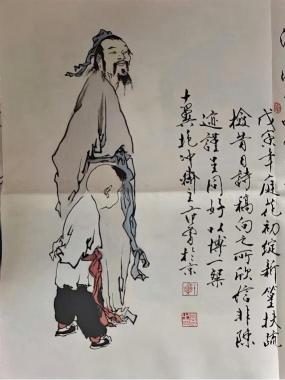 戊寅年庭花初綻新篁扶疏
檢昔日詩稿向之所欣信非陳
迹謹呈同好以博一粲
十翼抱冲齋主范曾於京